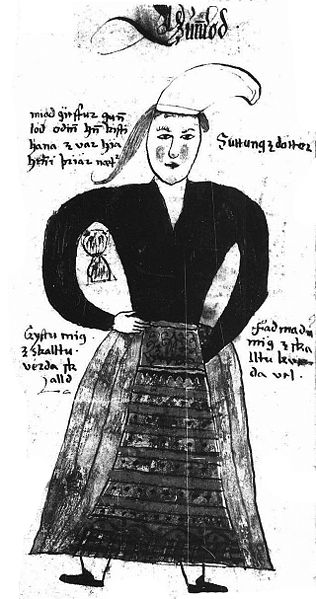 Gun̄lod
miad giffur gun̄
lod odin hn̄ kisti
hana z var hia
hen̄i þriar næt
Suttungz dotter
kystu mig
z skalltu
verda sk
alld
Fadmadu
mig z ska
lltu
da vel.